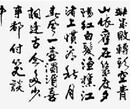 敗轉頭空青
山依舊在幾度夕
陽紅白髮漁樵江
渚上慣看秋月
春風一壺濁酒喜
相逢古今多少
事都付笑談
中